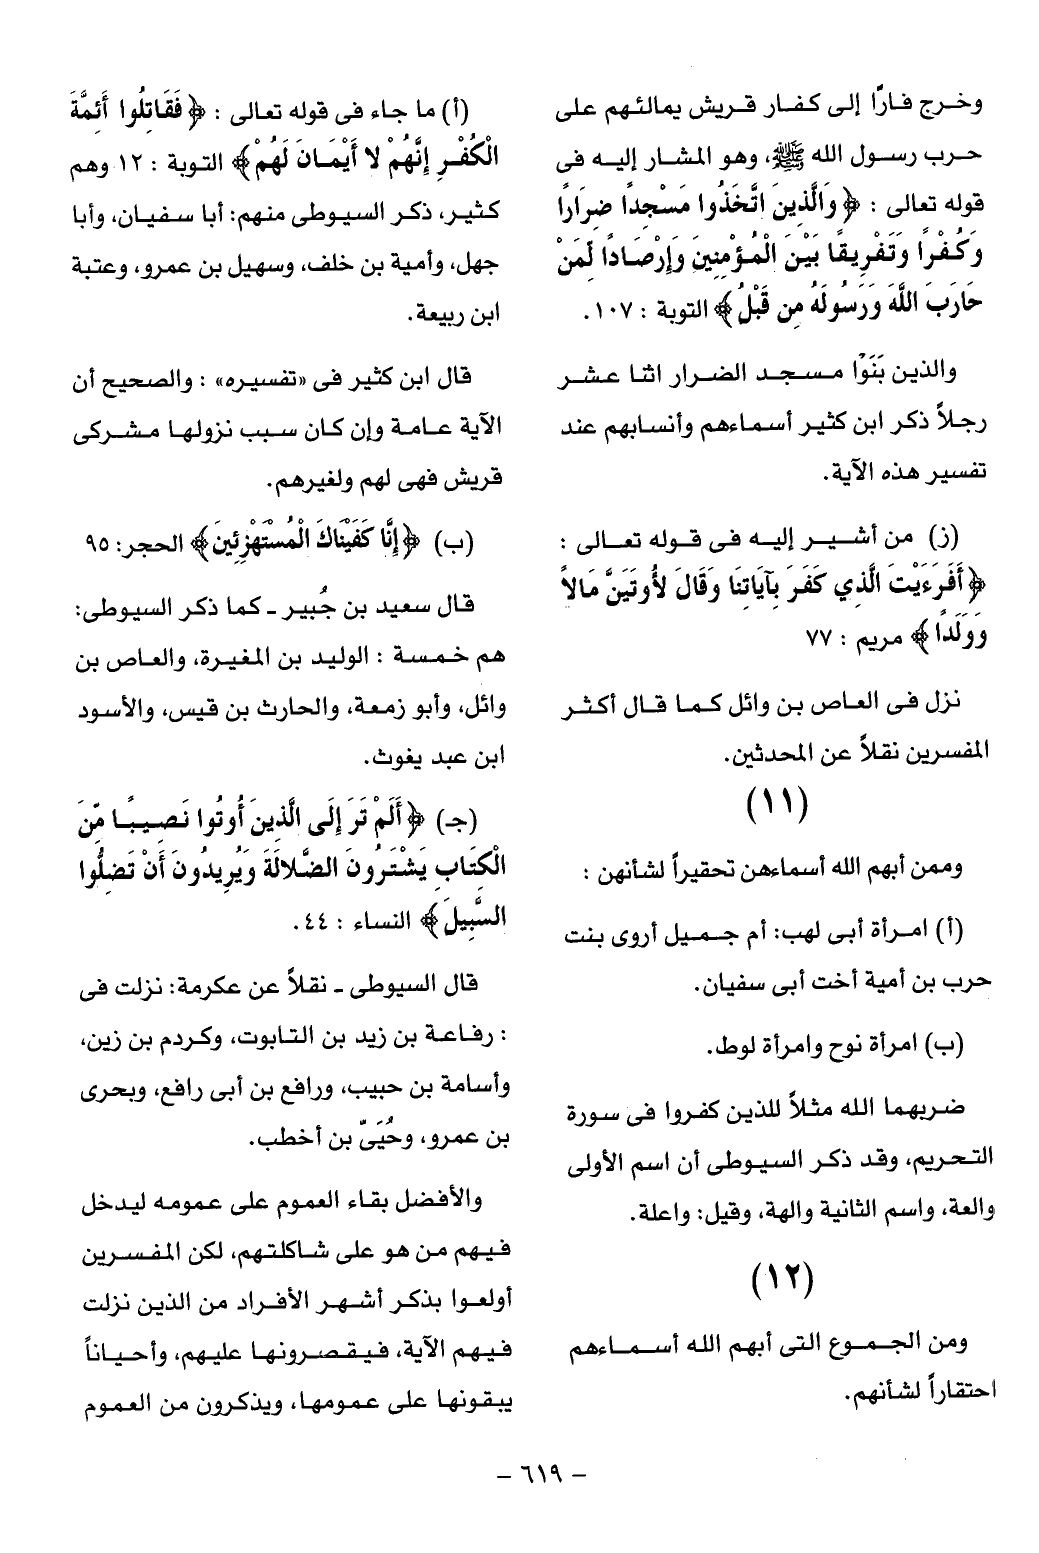 وخرج فارًّا إلى كفار قريش يمالئهم على
حرب رسول الله ﷺ، وهو المشار إليه فى
قوله تعالى : ﴿ وَالَّذِينَ اتَّخَذُوا مَسْجِداً ضِرَاراً
وَكُفْراً وَتَفْرِيقًا بَيْنَ الْمُؤْمِنِينَ وَإِرْصَادًا لِّمَنْ
حَارَبَ اللَّهَ وَرَسُولَهُ مِن قَبْلُ ﴾ التوبة : ١٠٧ .
والذين بَنَوْا مسجد الضرار اثنا عشر
رجلاً ذكر ابن كثير أسماءهم وأنسابهم عند
تفسير هذه الآية.
(ز) من أشير إليه فى قوله تعالى :
﴿ أَفَرَءَيْتَ الَّذِي كَفَرَ بِآيَاتِنَا وَقَالَ لأُوتَيَنَّ مَالاً
وَوَلَدًا ﴾ مريم : ٧٧
نزل فى العاص بن وائل كما قال أكثر
المفسرين نقلاً عن المحدثين.
(١١)
وممن أبهم الله أسماءهن تحقيراً لشأنهن :
(أ) امرأة أبى لهب: أم جميل أروى بنت
حرب بن أمية أخت أبى سفيان.
(ب) امرأة نوح وامرأة لوط.
ضربهما الله مثلاً للذين كفروا فى سورة
التحريم، وقد ذكر السيوطى أن اسم الأولى
والعة، واسم الثانية والهة، وقيل: واعلة.
(١٢)
ومن الجموع التى أبهم الله أسماءهم
احتقاراً لشأنهم.
(أ) ما جاء فى قوله تعالى : ﴿ فَقَاتِلُوا أَئِمَّةَ
الْكُفْرِ إِنَّهُمْ لا أَيْمَانَ لَهُمْ ﴾ التوبة : ١٢ وهم
كثير، ذكر السيوطى منهم: أبا سفيان، وأبا
جهل، وأمية بن خلف، وسهيل بن عمرو، وعتبة
ابن ربيعة.
قال ابن كثير فى «تفسيره» : والصحيح أن
الآية عامة وإن كان سبب نزولها مشركى
قريش فهى لهم ولغيرهم.
(ب) ﴿ إِنَّا كَفَيْنَاكَ الْمُسْتَهْزِئِينَ ﴾ الحجر: ٩٥
قال سعيد بن جُبير ـ كما ذكر السيوطى:
هم خمسة : الوليد بن المغيرة، والعاص بن
وائل، وأبو زمعة، والحارث بن قيس، والأسود
ابن عبد يغوث.
(جـ) ﴿ أَلَمْ تَرَ إِلَى الَّذِينَ أُوتُوا نَصِيبًا مِّنَ
الْكِتَابِ يَشْتَرُونَ الضَّلالَةَ وَيُرِيدُونَ أَنْ تَضِلُّوا
السَّبِيلَ ﴾ النساء : ٤٤ .
قال السيوطى ـ نقلاً عن عكرمة: نزلت فى
: رفاعة بن زيد بن التابوت، وكردم بن زين،
وأسامة بن حبيب، ورافع بن أبى رافع، وبحرى
بن عمرو، وحُيَىّ بن أخطب.
والأفضل بقاء العموم على عمومه ليدخل
فيهم من هو على شاكلتهم، لكن المفسرين
أولعوا بذكر أشهر الأفراد من الذين نزلت
فيهم الآية، فيقصرونها عليهم، وأحياناً
يبقونها على عمومها، ويذكرون من العموم
– ٦١٩ –